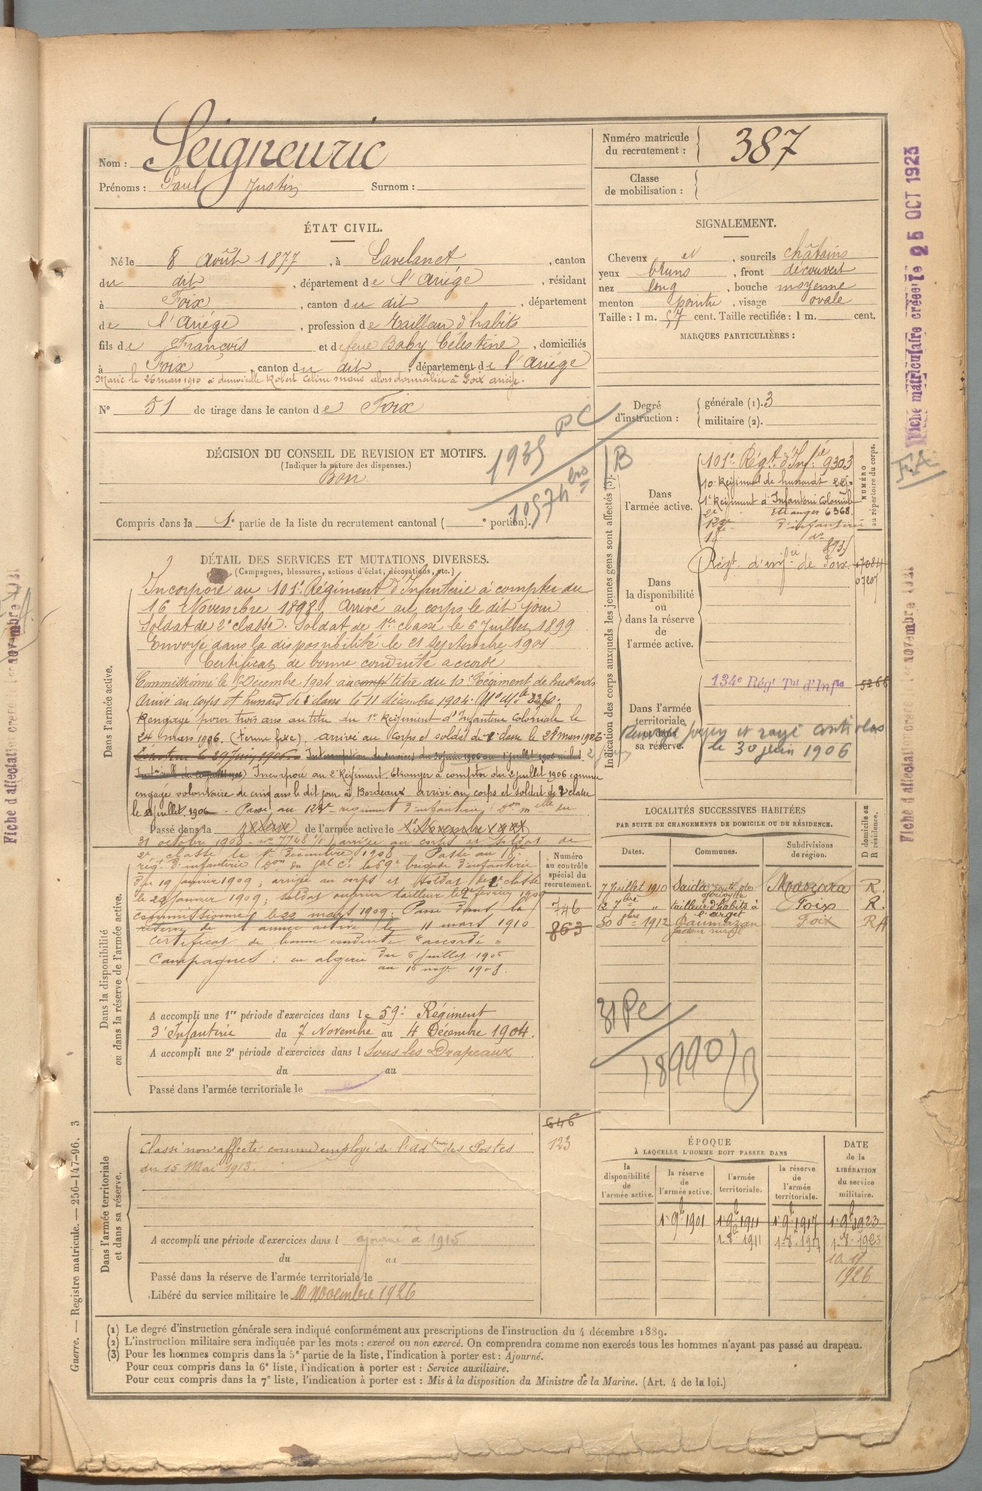 Nom : Seigneuric
Prénoms : Paul Justin Surnom :
Numéro matricule du recrutement : 387
Classe de mobilisation :
ÉTAT CIVIL.
Né le 8 Août 1877, à Lavelanet, canton
du dit, département de l'Ariége, résidant
à Foix, canton du dit, département
de l'Ariége, profession de tailleur d'habits
fils de François et de feue Baby Célestine, domiciliés
à Foix, canton du dit, département de l'Ariége
Marié le 26 mars 1910 à demoiselle Robert Céline Marie alors domiciliée à Foix Ariége.
N° 51 de tirage dans le canton de Foix
SIGNALEMENT.
Cheveux et, sourcils châtains
yeux bruns, front découvert
nez long, bouche moyenne
menton pointu, visage ovale
Taille : 1 m. 57 cent. Taille rectifiée : 1 m. cent.
MARQUES PARTICULIÈRES :
Degré d'instruction : générale (1). 3
militaire (2).
DÉCISION DU CONSEIL DE REVISION ET MOTIFS.
(Indiquer la nature des dispenses.)
Bon
Compris dans la 1e partie de la liste du recrutement cantonal ( e portion).
1935 PC
DÉTAIL DES SERVICES ET MUTATIONS DIVERSES.
(Campagnes, blessures, actions d'éclat, décorations, etc.)
Dans l'armée active.
Incorporé au 101e Régiment d'Infanterie à compter du
16 Novembre 1898. Arrivé au corps le dit jour
Soldat de 2e classe. Soldat de 1re classe le 6 Juillet 1899
Envoyé dans la disponibilité le 21 Septembre 1901
Certificat de bonne conduite accordé
Commissionné le Décembre 1904 au titre du 10e Régiment de hussards
arrivé au corps et hussard de classe le 11 décembre 1904.
Rengagé pour trois ans au titre du 1er Régiment d'Infanterie Coloniale le
24 mars 1906, arrivé au Corps et soldat de 2e classe le 28 mars 1906
Incorporé au 2e Régiment Étranger à compter du 2 juillet 1906 comme
engagé volontaire de cinq ans le dit jour à Bordeaux. arrivé au corps et soldat de 2e classe
le juillet 1906. Passé au régiment d'infanterie
Passé dans la de l'armée active le
31 octobre 1908 arrivé au corps et soldat de
2e classe le 1er Décembre 1908 Passé au
régt d'infanterie
du 19 janvier 1909, arrivé au corps et soldat de 2e classe
le 22 janvier 1909, soldat ouvrier tailleur le février 1909
commissionné le 22 mars 1909. Passé dans la
réserve de l'armée active le 11 mars 1910
Certificat de bonne conduite "accordé"
Campagnes : en algérie du 6 juillet 1906
au 15 1908.
Dans la disponibilité ou dans la réserve de l'armée active.
A accompli une 1re période d'exercices dans le 59e Régiment
d'Infanterie du 7 Novembre au 4 Décembre 1904.
A accompli une 2e période d'exercices dans l Sous les Drapeaux
du au
Passé dans l'armée territoriale le
Numéro au contrôle spécial du recrutement.
746
863
646
123
Dans l'armée territoriale et dans sa réserve.
Classé non affecté comme employé de l'adon des Postes
du 15 Mai 1913.
A accompli une période d'exercices dans l ajourné à 1915
du au
Passé dans la réserve de l'armée territoriale le
Libéré du service militaire le 10 Novembre 1926
Indication des corps auxquels les jeunes gens sont affectés (3).
B
NUMÉRO au répertoire du corps.
Dans l'armée active.
101e Régt d'Infie 9303
10e Régiment de hussards
1er Régiment d'Infanterie Coloniale
2e Étranger 6368
d'infanterie
Dans la disponibilité ou dans la réserve de l'armée active.
Régt d'infie de Foix
Dans l'armée territoriale et dans sa réserve.
134e Régt Tal d'Infie
le 30 juin 1906
LOCALITÉS SUCCESSIVES HABITÉES
PAR SUITE DE CHANGEMENTS DE DOMICILE OU DE RÉSIDENCE.
Dates. Communes. Subdivisions de région. D domicile ou R résidence.
7 Juillet 1910 Saïda Mascara R.
12 7bre " tailleur d'habits à l'arget Foix R.
30 8bre 1912 Daumazan Foix RA
PC
18990 B
ÉPOQUE
A LAQUELLE L'HOMME DOIT PASSER DANS
la disponibilité de l'armée active.
la réserve de l'armée active.
l'armée territoriale.
la réserve de l'armée territoriale.
DATE de la LIBÉRATION du service militaire.
1-9-1901 1-9-1911 1-9-1917 1-9-1923
1-8-1911 1-8-1917 1-8-1923
10 11 1926
(1) Le degré d'instruction générale sera indiqué conformément aux prescriptions de l'instruction du 4 décembre 1889.
(2) L'instruction militaire sera indiquée par les mots : exercé ou non exercé. On comprendra comme non exercés tous les hommes n'ayant pas passé au drapeau.
(3) Pour les hommes compris dans la 5e partie de la liste, l'indication à porter est : Ajourné.
Pour ceux compris dans la 6e liste, l'indication à porter est : Service auxiliaire.
Pour ceux compris dans la 7e liste, l'indication à porter est : Mis à la disposition du Ministre de la Marine. (Art. 4 de la loi.)
Guerre. — Registre matricule. — 256-147-96. 3
Fiche matriculaire créée le 25 OCT 1923
F.A.